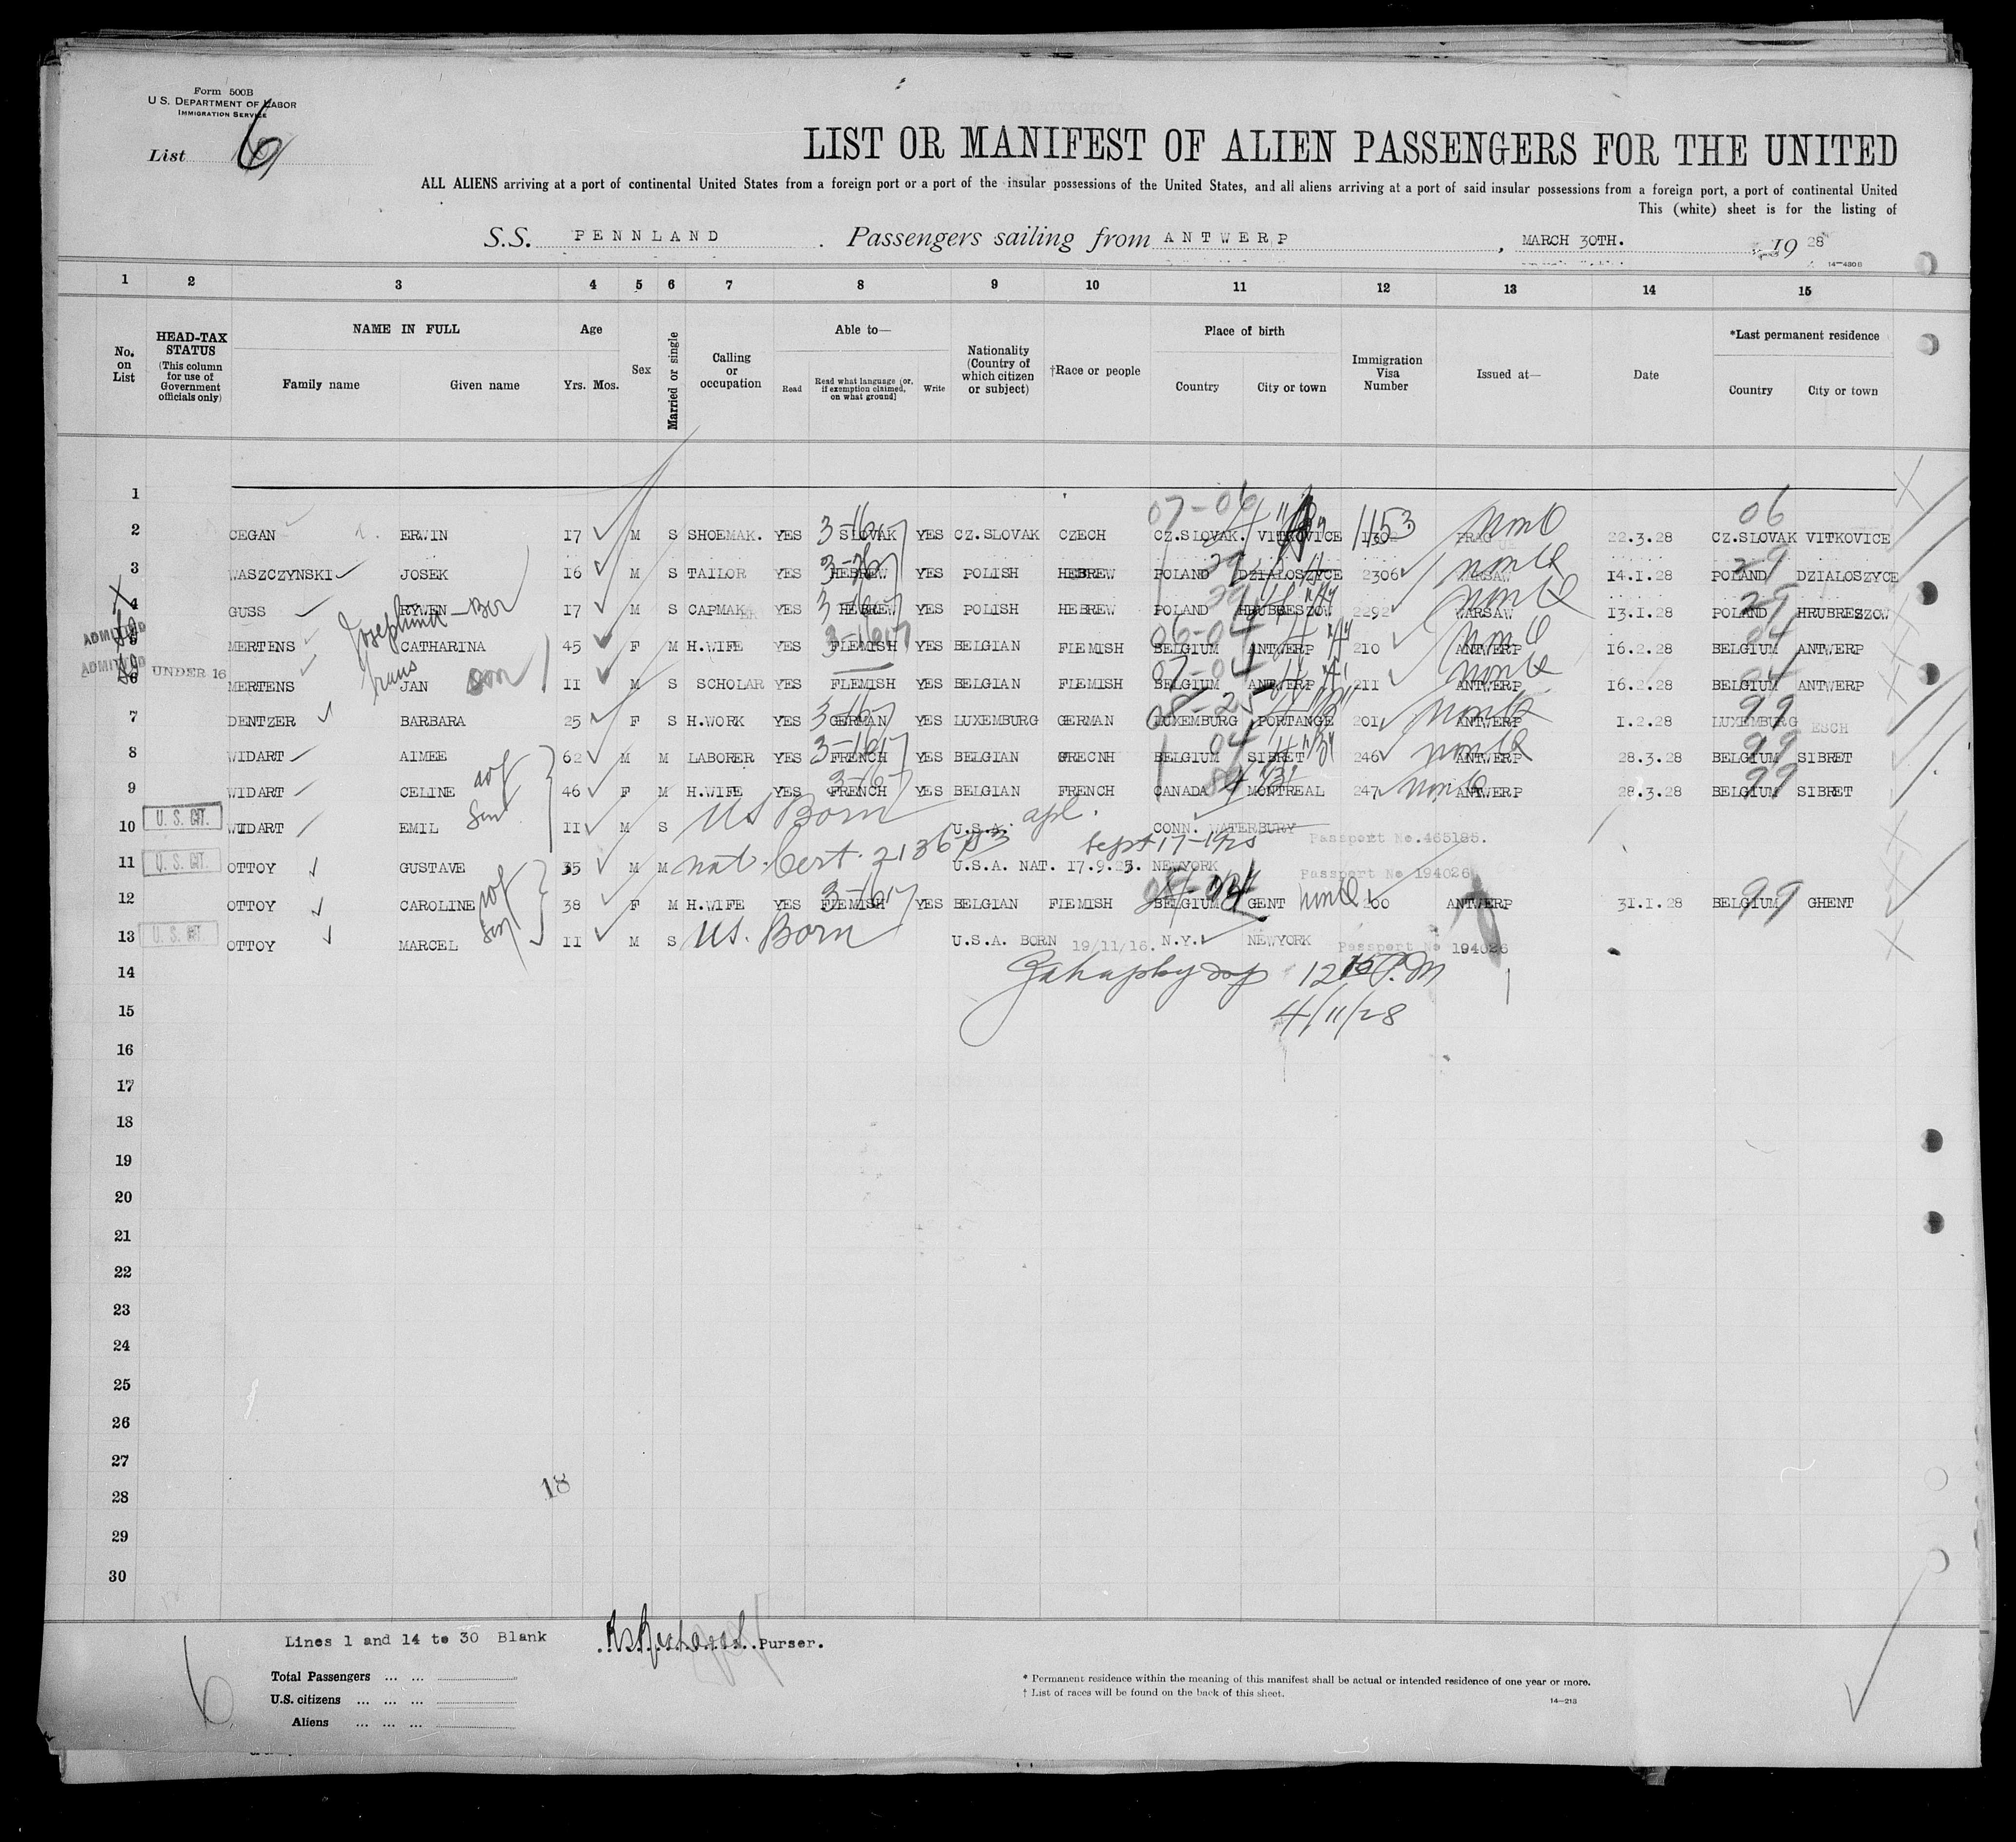 Form 500B
U.S. DEPARTMENT OF LABOR
IMMIGRATION SERVICE
List 6
LIST OR MANIFEST OF ALIEN PASSENGERS FOR THE UNITED
ALL ALIENS arriving at a port of continental United States from a foreign port or a port of the insular possessions of the United States, and all aliens arriving at a port of said insular possessions from a foreign port, a port of continental United
This (white) sheet is for the listing of
S.S. PENNLAND. Passengers sailing from ANTWERP, MARCH 30TH. 1928
14-430B
1 2 3 4 5 6 7 8 9 10 11 12 13 14 15
No. on List
HEAD-TAX STATUS (This column for use of Government officials only)
NAME IN FULL Family name Given name
Age Yrs. Mos.
Sex
Married or single
Calling or occupation
Able to— Read Read what language (or, if exemption claimed, on what ground) Write
Nationality (Country of which citizen or subject)
†Race or people
Place of birth Country City or town
Immigration Visa Number
Issued at—
Date
*Last permanent residence Country City or town
1
07-06 06
2 CEGAN ERWIN 17 M S SHOEMAK. YES 3-16 SLOVAK YES CZ.SLOVAK CZECH CZ.SLOVAK. VITKOVICE 1153 22.3.28 CZ.SLOVAK VITKOVICE
3 WASZCZYNSKI JOSEK 16 M S TAILOR YES HEBREW YES POLISH HEBREW POLAND DZIALOSZYCE 2306 WARSAW 14.1.28 POLAND 29 DZIALOSZYCE
4 GUSS RYWEN 17 M S CAPMAKER YES HEBREW YES POLISH HEBREW POLAND HRUBRESZOW 2292 WARSAW 13.1.28 POLAND 29 HRUBRESZOW
ADMITTED 5 MERTENS CATHARINA 45 F M H.WIFE YES FLEMISH YES BELGIAN FLEMISH BELGIUM 06-04 ANTWERP 210 ANTWERP 16.2.28 BELGIUM 04 ANTWERP
ADMITTED 6 UNDER 16 MERTENS JAN son 11 M S SCHOLAR YES FLEMISH YES BELGIAN FLEMISH BELGIUM 07-04 ANTWERP 211 ANTWERP 16.2.28 BELGIUM 04 ANTWERP
7 DENTZER BARBARA 25 F S H.WORK YES GERMAN YES LUXEMBURG GERMAN LUXEMBURG 08-25 PORTANGE 201 ANTWERP 1.2.28 LUXEMBURG 99 ESCH
8 WIDART AIMEE 62 M M LABORER YES FRENCH YES BELGIAN GRECNH BELGIUM 04 SIBRET 246 ANTWERP 28.3.28 BELGIUM 99 SIBRET
9 WIDART CELINE 46 F M H.WIFE YES FRENCH YES BELGIAN FRENCH CANADA MONTREAL 247 ANTWERP 28.3.28 BELGIUM 99 SIBRET
U.S. CIT. 10 WIDART EMIL 11 M S US Born U.S.A. CONN. WATERBURY Passport No.465185.
nat. Cert. Sept 17-1925
U.S. CIT. 11 OTTOY GUSTAVE 35 M M U.S.A. NAT. 17.9.25. NEWYORK Passport No 194026
12 OTTOY CAROLINE 38 F M H.WIFE YES FLEMISH YES BELGIAN FLEMISH BELGIUM GENT 200 ANTWERP 31.1.28 BELGIUM 99 GHENT
U.S. CIT. 13 OTTOY MARCEL 11 M S US. Born U.S.A. BORN 19/11/16. N.Y. NEWYORK Passport No 194026
14 12 15 P.M
15 4/11/28
16
17
18
19
20
21
22
23
24
25
26
27
18
28
29
30
Lines 1 and 14 to 30 Blank Purser.
6
Total Passengers ... ...
U.S. citizens ... ... ...
Aliens ... ... ...
* Permanent residence within the meaning of this manifest shall be actual or intended residence of one year or more.
† List of races will be found on the back of this sheet.
14-213